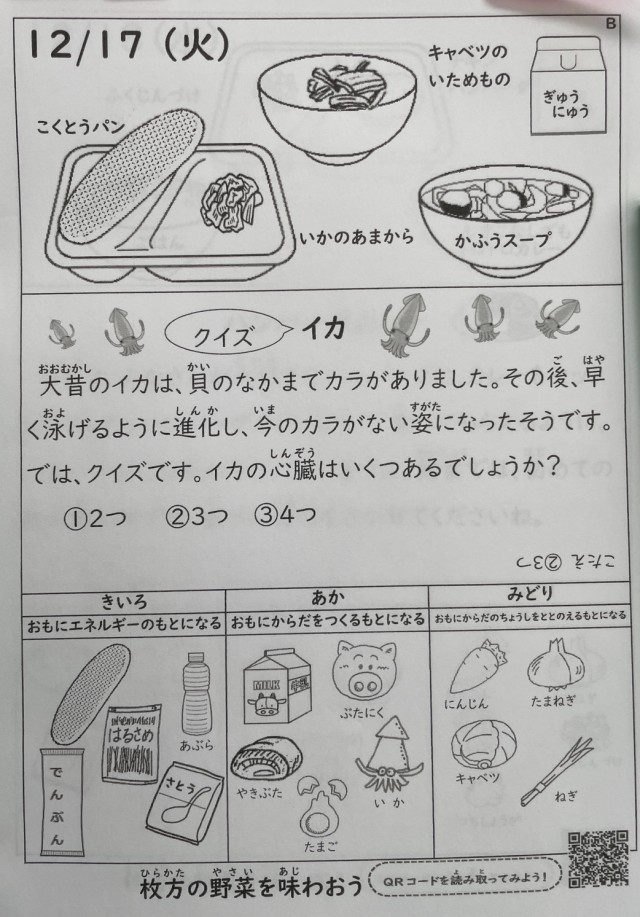 B
12/17（火）
キャベツの
いためもの
ぎゅう
にゅう
こくとうパン
いかのあまから
かふうスープ
クイズ
イカ
大昔のイカは、貝のなかまでカラがありました。その後、早
く泳げるように進化し、今のカラがない姿になったそうです。
では、クイズです。イカの心臓はいくつあるでしょうか？
①2つ ②3つ ③4つ
こたえ ②3つ
きいろ
あか
みどり
おもにエネルギーのもとになる
おもにからだをつくるもとになる
おもにからだのちょうしをととのえるもとになる
はるさめ
あぶら
でんぷん
さとう
MILK
牛乳
ぶたにく
やきぶた
いか
たまご
にんじん
たまねぎ
キャベツ
ねぎ
枚方の野菜を味わおう
QRコードを読み取ってみよう！